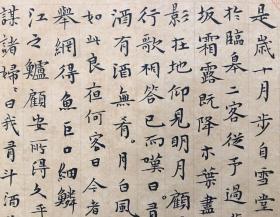 是歲十月步自雪堂
於臨皋二客從予過黃
坂霜露既降木葉盡
影在地仰見明月顧
行歌相答已而嘆曰有
酒有酒無肴月白風
如此良夜何客曰今者
舉網得魚巨口細鱗
江之鱸顧安所得酒乎
謀諸婦婦曰我有斗酒